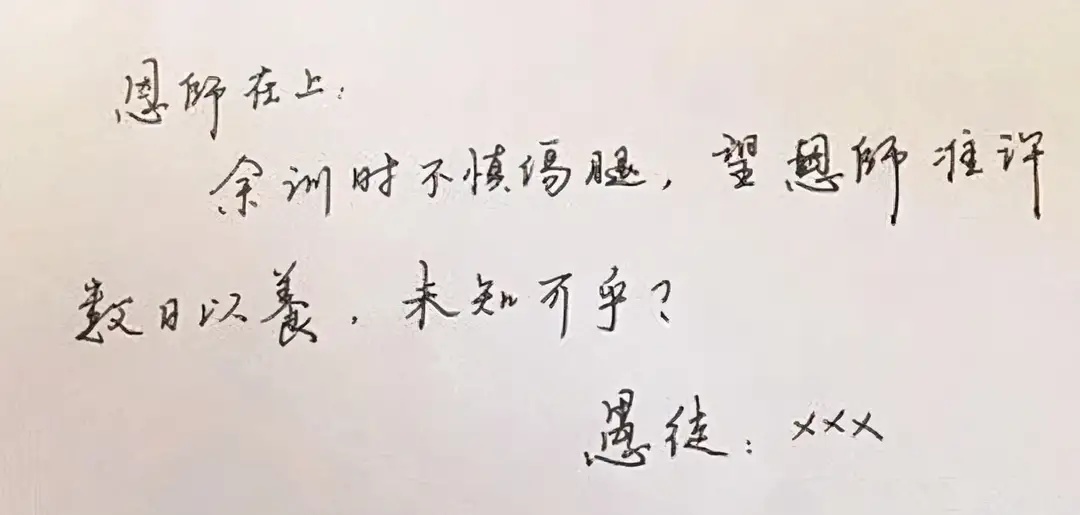 恩師在上:
余训时不慎傷腿，望恩師准许
数日以養，未知可乎?
愚徒: xxx